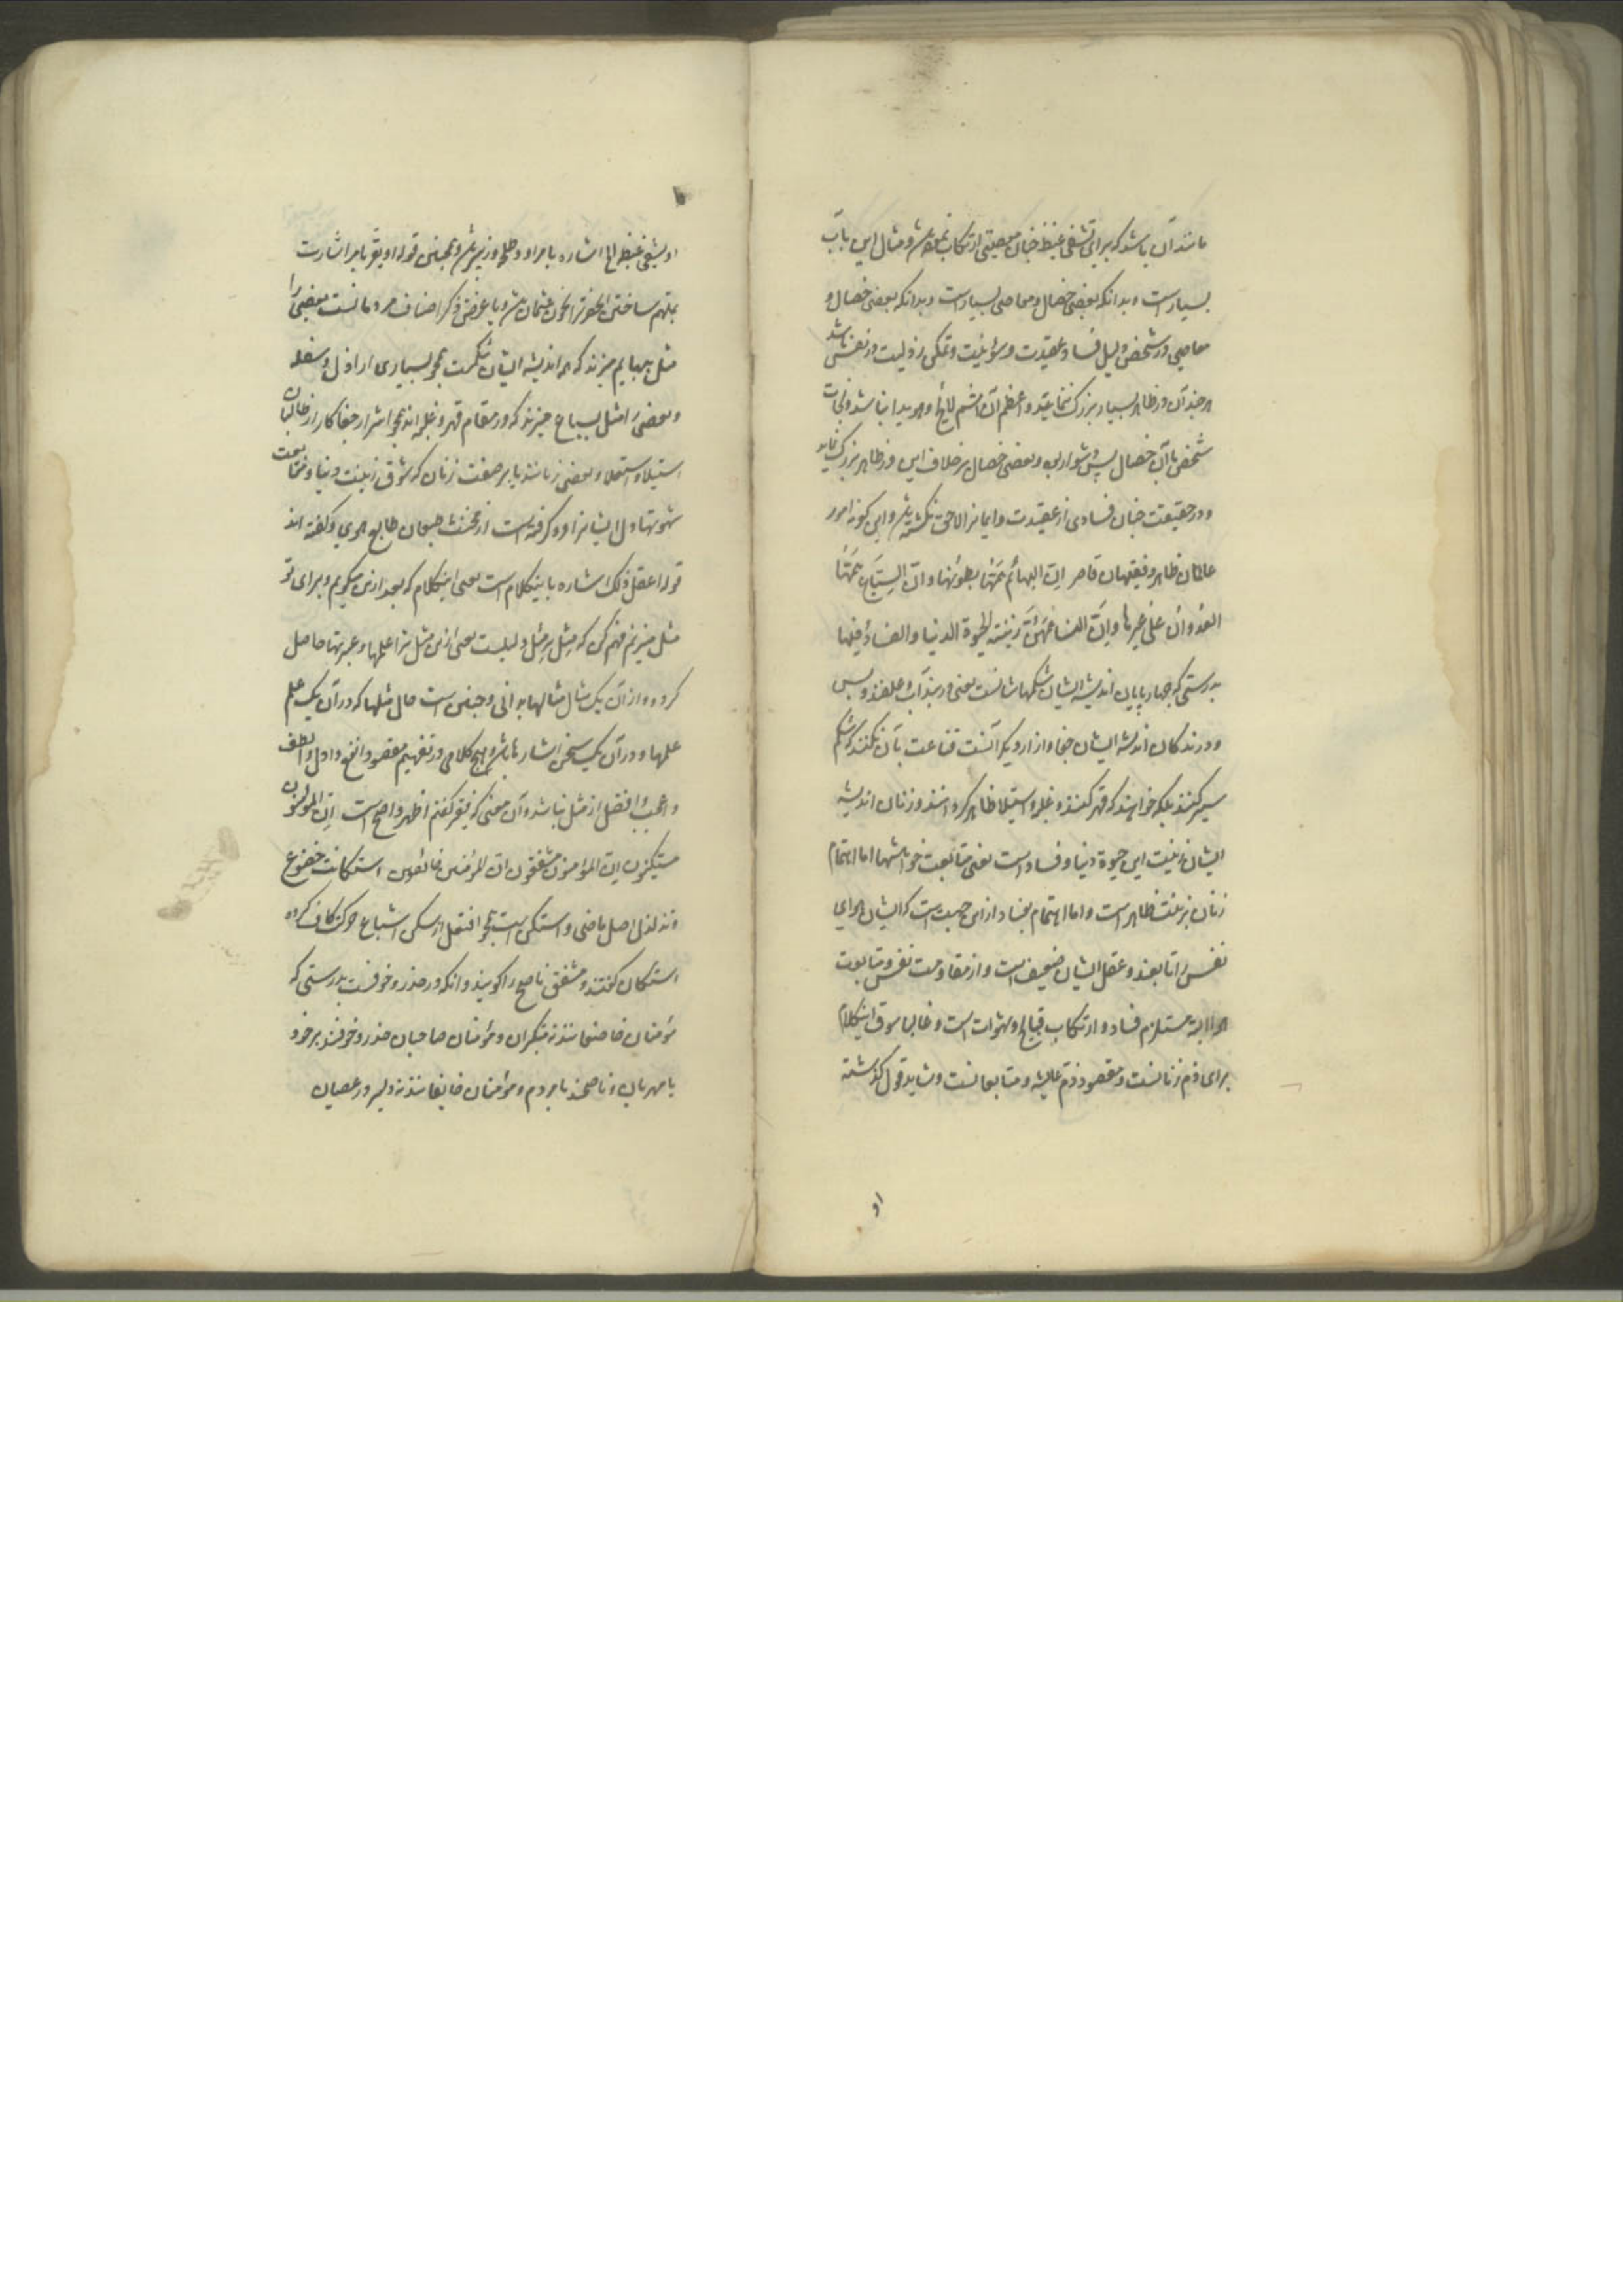 مانند آن باشد که برای تشفی غیظ چنان معصیتی ارتکاب نموده و مثال این باب
بسیار است و بدانکه بعضی خصال و معاصی بسیار است و بدانکه بعضی خصال و
معاصی در شخص دلیل فساد عقیدت و سوء نیت و تمکن رذیلت در نفس باشد
هر چند آن در ظاهر بسیار بزرگ ننماید و اعظم آن لایح و هویدا نباشد و نجات
شخص با آن خصال بس دشوار بود و بعضی خصال بر خلاف این در ظاهر بزرگ نماید
و در حقیقت چنان فسادی از عقیدت و ایمانرا لاحق نگشته و این گونه امور
عالمان ظاهر و فقیهان قاصر اِنّ البهائم همّها بطونها و انّ السباع همّها
العدوان علی غیرها و اِنّ النساء همّهنّ زینة الحیوة الدنیا و الفساد فیها
بدرستی که چهارپایان اندیشه ایشان شکمهاشانست یعنی در بند آب و علفند و بس
و درندگان اندیشه ایشان جفا و ازار دیگرانست قناعت بآن نکنند که شکم
سیر کنند بلکه خواهند که قهر کنند و غلبه و استیلا ظاهر کرده‌اند و زنان اندیشه
ایشان زینت این حیوة دنیا و فساد است یعنی متابعت خواهشها اما اهتمام
زنان بزینت ظاهر است و اما اهتمام بفساد از این جهت است که ایشان هوای
نفس را تابعند و عقل ایشان ضعیف است و از مقاومت نفس و متابعت
هوا البته مستلزم فساد و ارتکاب قبایح و شهوات است و غالبا سوق اینکلام
برای ذم زنانست و مقصود ذم عایشه و متابعانست و شاید قول گذشته
او
او یشفی غیظه الخ اشاره بامر او و طلحه و زبیر و همچنین قوله او یقر بامر اشارت
بمتهم ساختن آنحضرت بخون عثمان و یا غرض ذکر اصناف مردمانست بعضی را
مثل ببهایم میزند که همه اندیشه ایشان شکمست همچو بسیاری اراذل و سفله
و بعضی را مثل بسباع میزند که در مقام قهر و غلبه‌اند همچو اشرار جفاکار از طالبان
استیلا و استعلا و بعضی زنانند یا بر صفت زنان که شوق زینت دنیا و متابعت
شهوتها دل ایشانرا فرو گرفته است از مخنث طبعان طالع هوی و گفته اند
قوله اعقل ذلک اشاره باینکلام است یعنی اینکلام که بعد ازین میگویم و برای تو
مثل میزنم فهم کن که مثل بر مثل دلیلست یعنی ازین مثل ترا علمها و عبرتها حاصل
کردد و از آن یک مثال مثالها بدانی و چنین است حال مثلها که در آن یک علم
علمها و در آن یک سخن اشارتها باشد و هیچ کلامی در تفهیم مقصود انفع و ادل و الطف
و اعجب و افضل از مثل نباشد و آن معنی که فقیر گفتم اظهر و اصح است اِنّ المؤمنون
مستکینون اِنّ المؤمنون مشفقون انّ المؤمنین خائفون استکانت خضوع
و تذلل اصل ماضی استکن است همچو افتعل از سکن اشباع حرکت کاف کرده
استکان گفتند و مشفق ناصح را گویند و آنکه در حذر و خوفست بدرستی که
مؤمنان خاضعانند نه متکبران و مؤمنان صاحبان حذر و خوفند بر خود
یا مهربان و ناصحند با مردم و مؤمنان خایفانند نه دلیر در عصیان